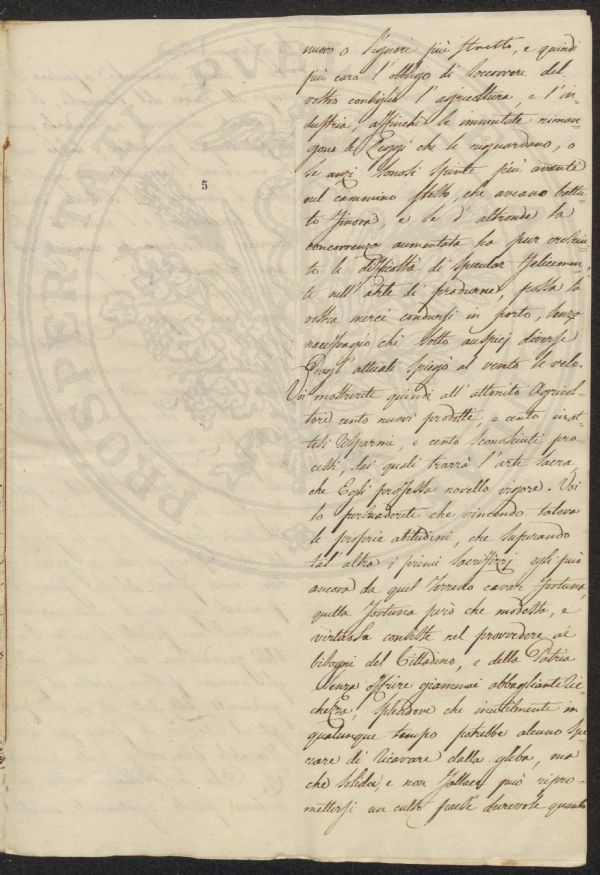 nuovo o Signori più stretto, e quindi
più caro l'obbligo di soccorrere del
vostro consiglio l'agricoltura, e l'in=
dustria, affinchè le immutate riman=
gono le Leggi che le risguardano, o
se anzi sonosi spinte più avanti
nel cammino stesso, che aveano battu=
to finora, e se d'altronde la
concorrenza aumentata ha pur cresciu=
to le difficoltà di specular felicemen=
te nell'arte di produrne, possa la
vostra mercè condursi in porto, senza
naufragio chi sotto auspicj diversi
dagl'attuali spiegò al vento le vele.
Voi mostrerete quindi all'attonito Agricol=
tore cento nuovi prodotti, e cento inat=
tesi risparmi, e cento sconosciuti pro=
cessi, dai quali trarrà l'arte sacra
che Egli professa novello vigore. Voi
lo persuaderete che vincendo talora
le proprie abitudini, che superando
tal'altra i primi sacrifizj egli può
ancora da quel terreno cavar fortuna,
quella fortuna però che modesta, e
virtuosa consiste nel provvedere ai
bisogni del Cittadino, e della Patria
senza offrire giammai abbagliante ric=
chezza, splendore che inutilmente in
qualunque tempo potrebbe alcuno spe
rare di ricavare dalla gleba, ma
che solida, e non fallace può ripro=
mettersi un culto paese durevole quanto
5
PROSPERITATI PUBL